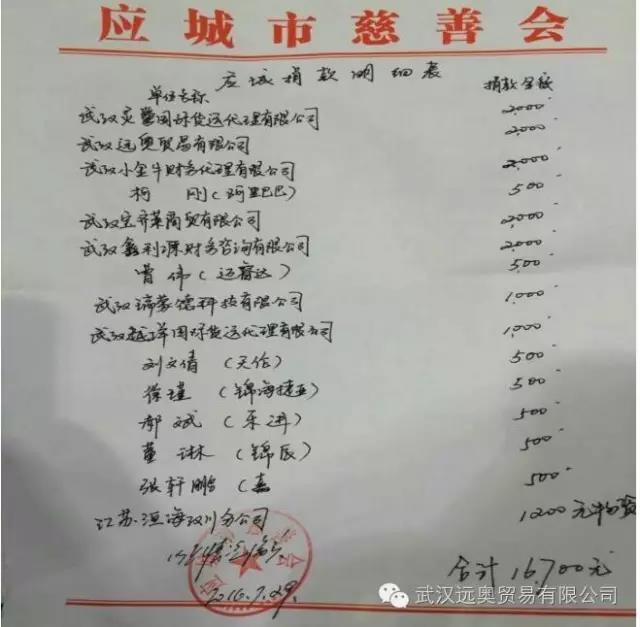 应城市慈善会
应城捐款明细表
单位名称 捐款金额
武汉灵鳌国际货运代理有限公司 2,000
武汉远奥贸易有限公司 2,000
武汉小金牛财务代理有限公司 2,000
柯 刚(阿里巴巴) 500
武汉 商贸有限公司 2,000
武汉鑫利源财务咨询有限公司 2,000
曾伟(运睿达) 500
武汉瑞蒙德科技有限公司 1,000
武汉越洋国际货运代理有限公司 1,000
刘文倩(天伦) 500
徐瑾(锦海捷亚) 500
郝斌(乐进) 500
董琳(锦辰) 500
张轩鹏(嘉 500
江苏 海汉川分公司 1200元物资
2016.7.29
合计 16,700元
武汉远奥贸易有限公司